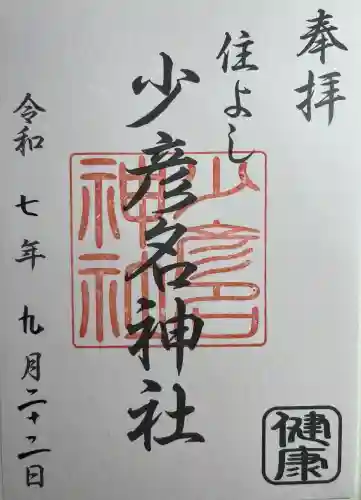 奉拝
住よし
少彦名神社
少彦名
神社
令和七年九月二十二日
健康